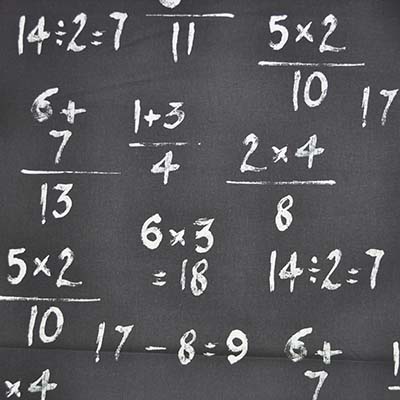 14÷2=7
11
5×2
10
17
6+
7
13
1+3
4
2×4
8
6×3
=18
14÷2=7
5×2
10
17-8=9
6+
7
×4